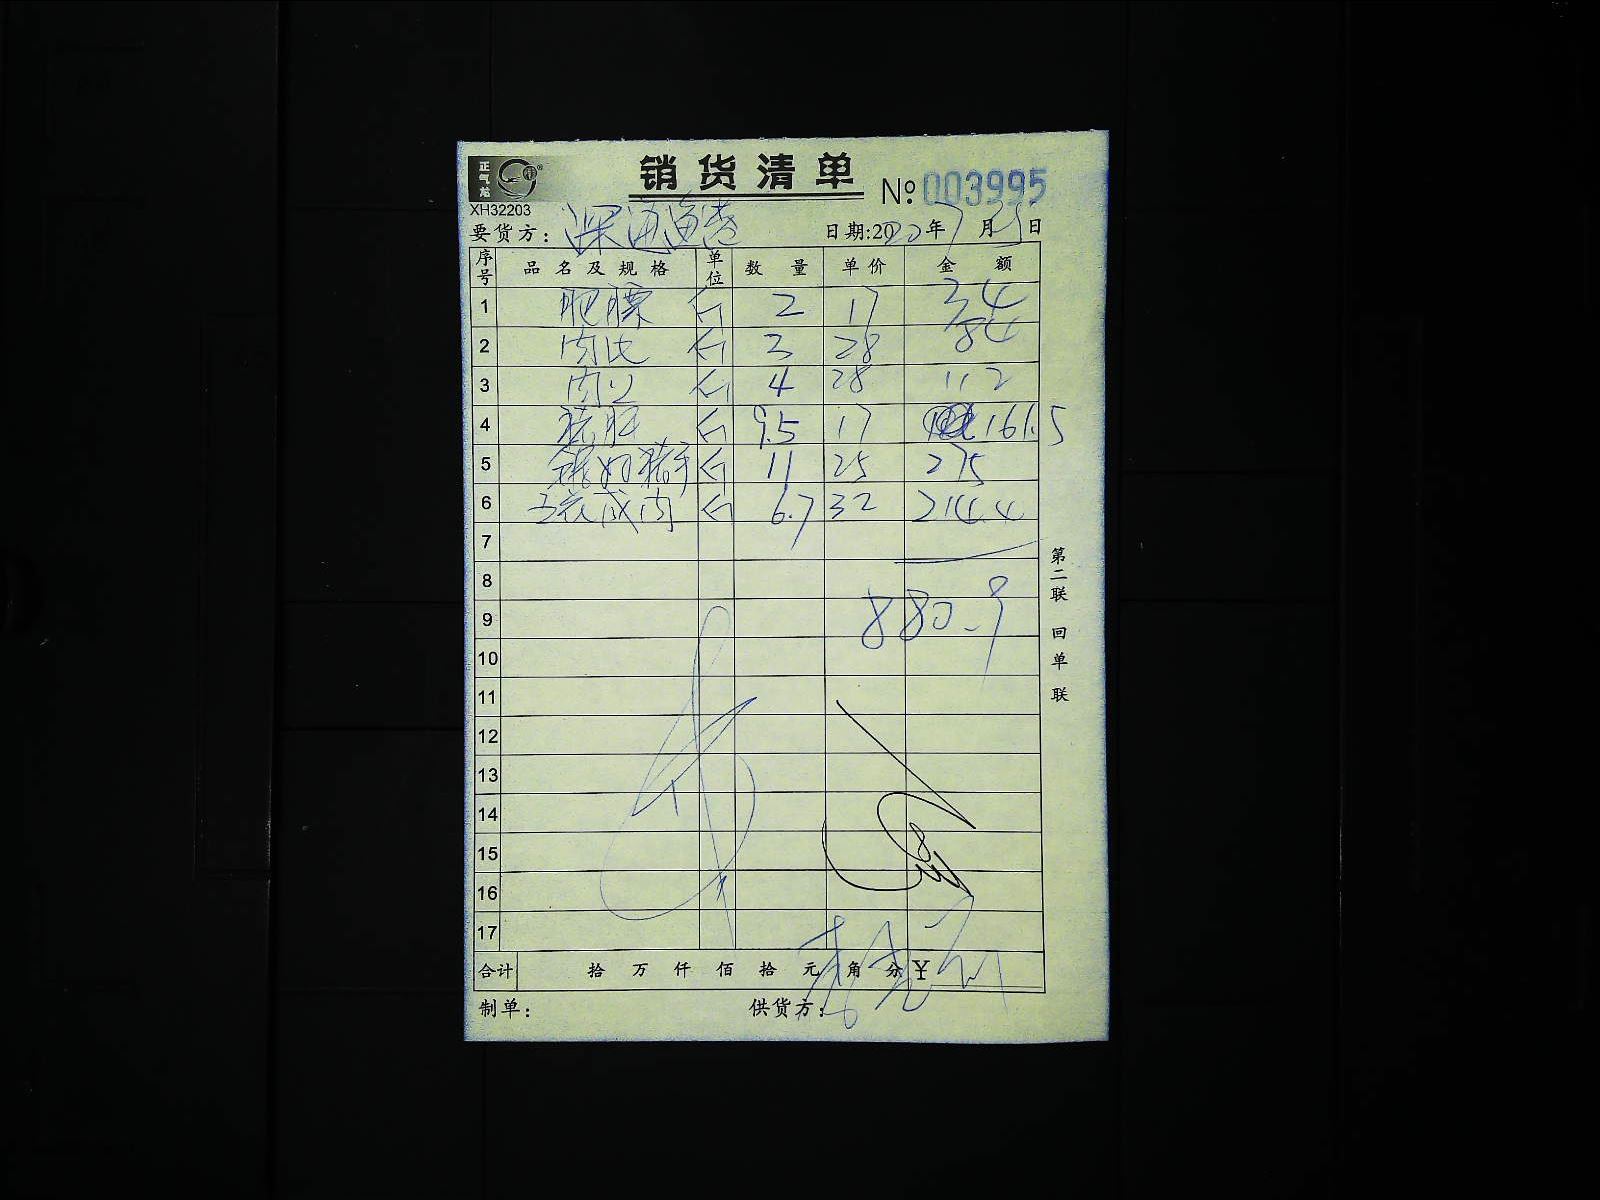 正气龙
销货清单
№ 003995
XH32203
要货方: 日期:2020年7月 日
序号 品名及规格 单位 数量 单价 金额
1 肥膘 斤 2 17 34
2 肉 斤 3 28 84
3 肉 斤 4 28 112
4 猪 斤 9.5 17 161.5
5 猪手 斤 11 25 275
6 五花 肉 斤 6.7 32 214.4
7
8
9 880.9
10
11
12
13
14
15
16
17
合计 拾 万 仟 佰 拾 元 角 分 ¥
制单: 供货方:
第二联 回单联